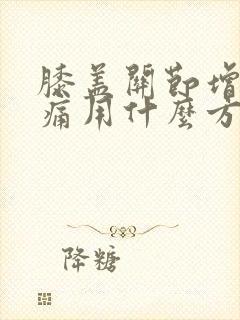 膝盖關節增
痛用什麼方
降糖